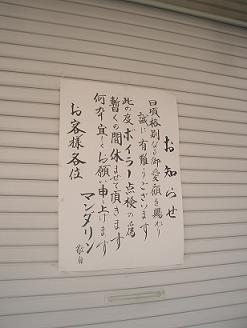 お知らせ
日頃格別なる御愛顧を賜わり
誠に有難うございます
此の度ボイラー点検の為
暫くの間休ませて頂きます
何卒宜しくお願い申し上げます
マンダリン
お客様各位